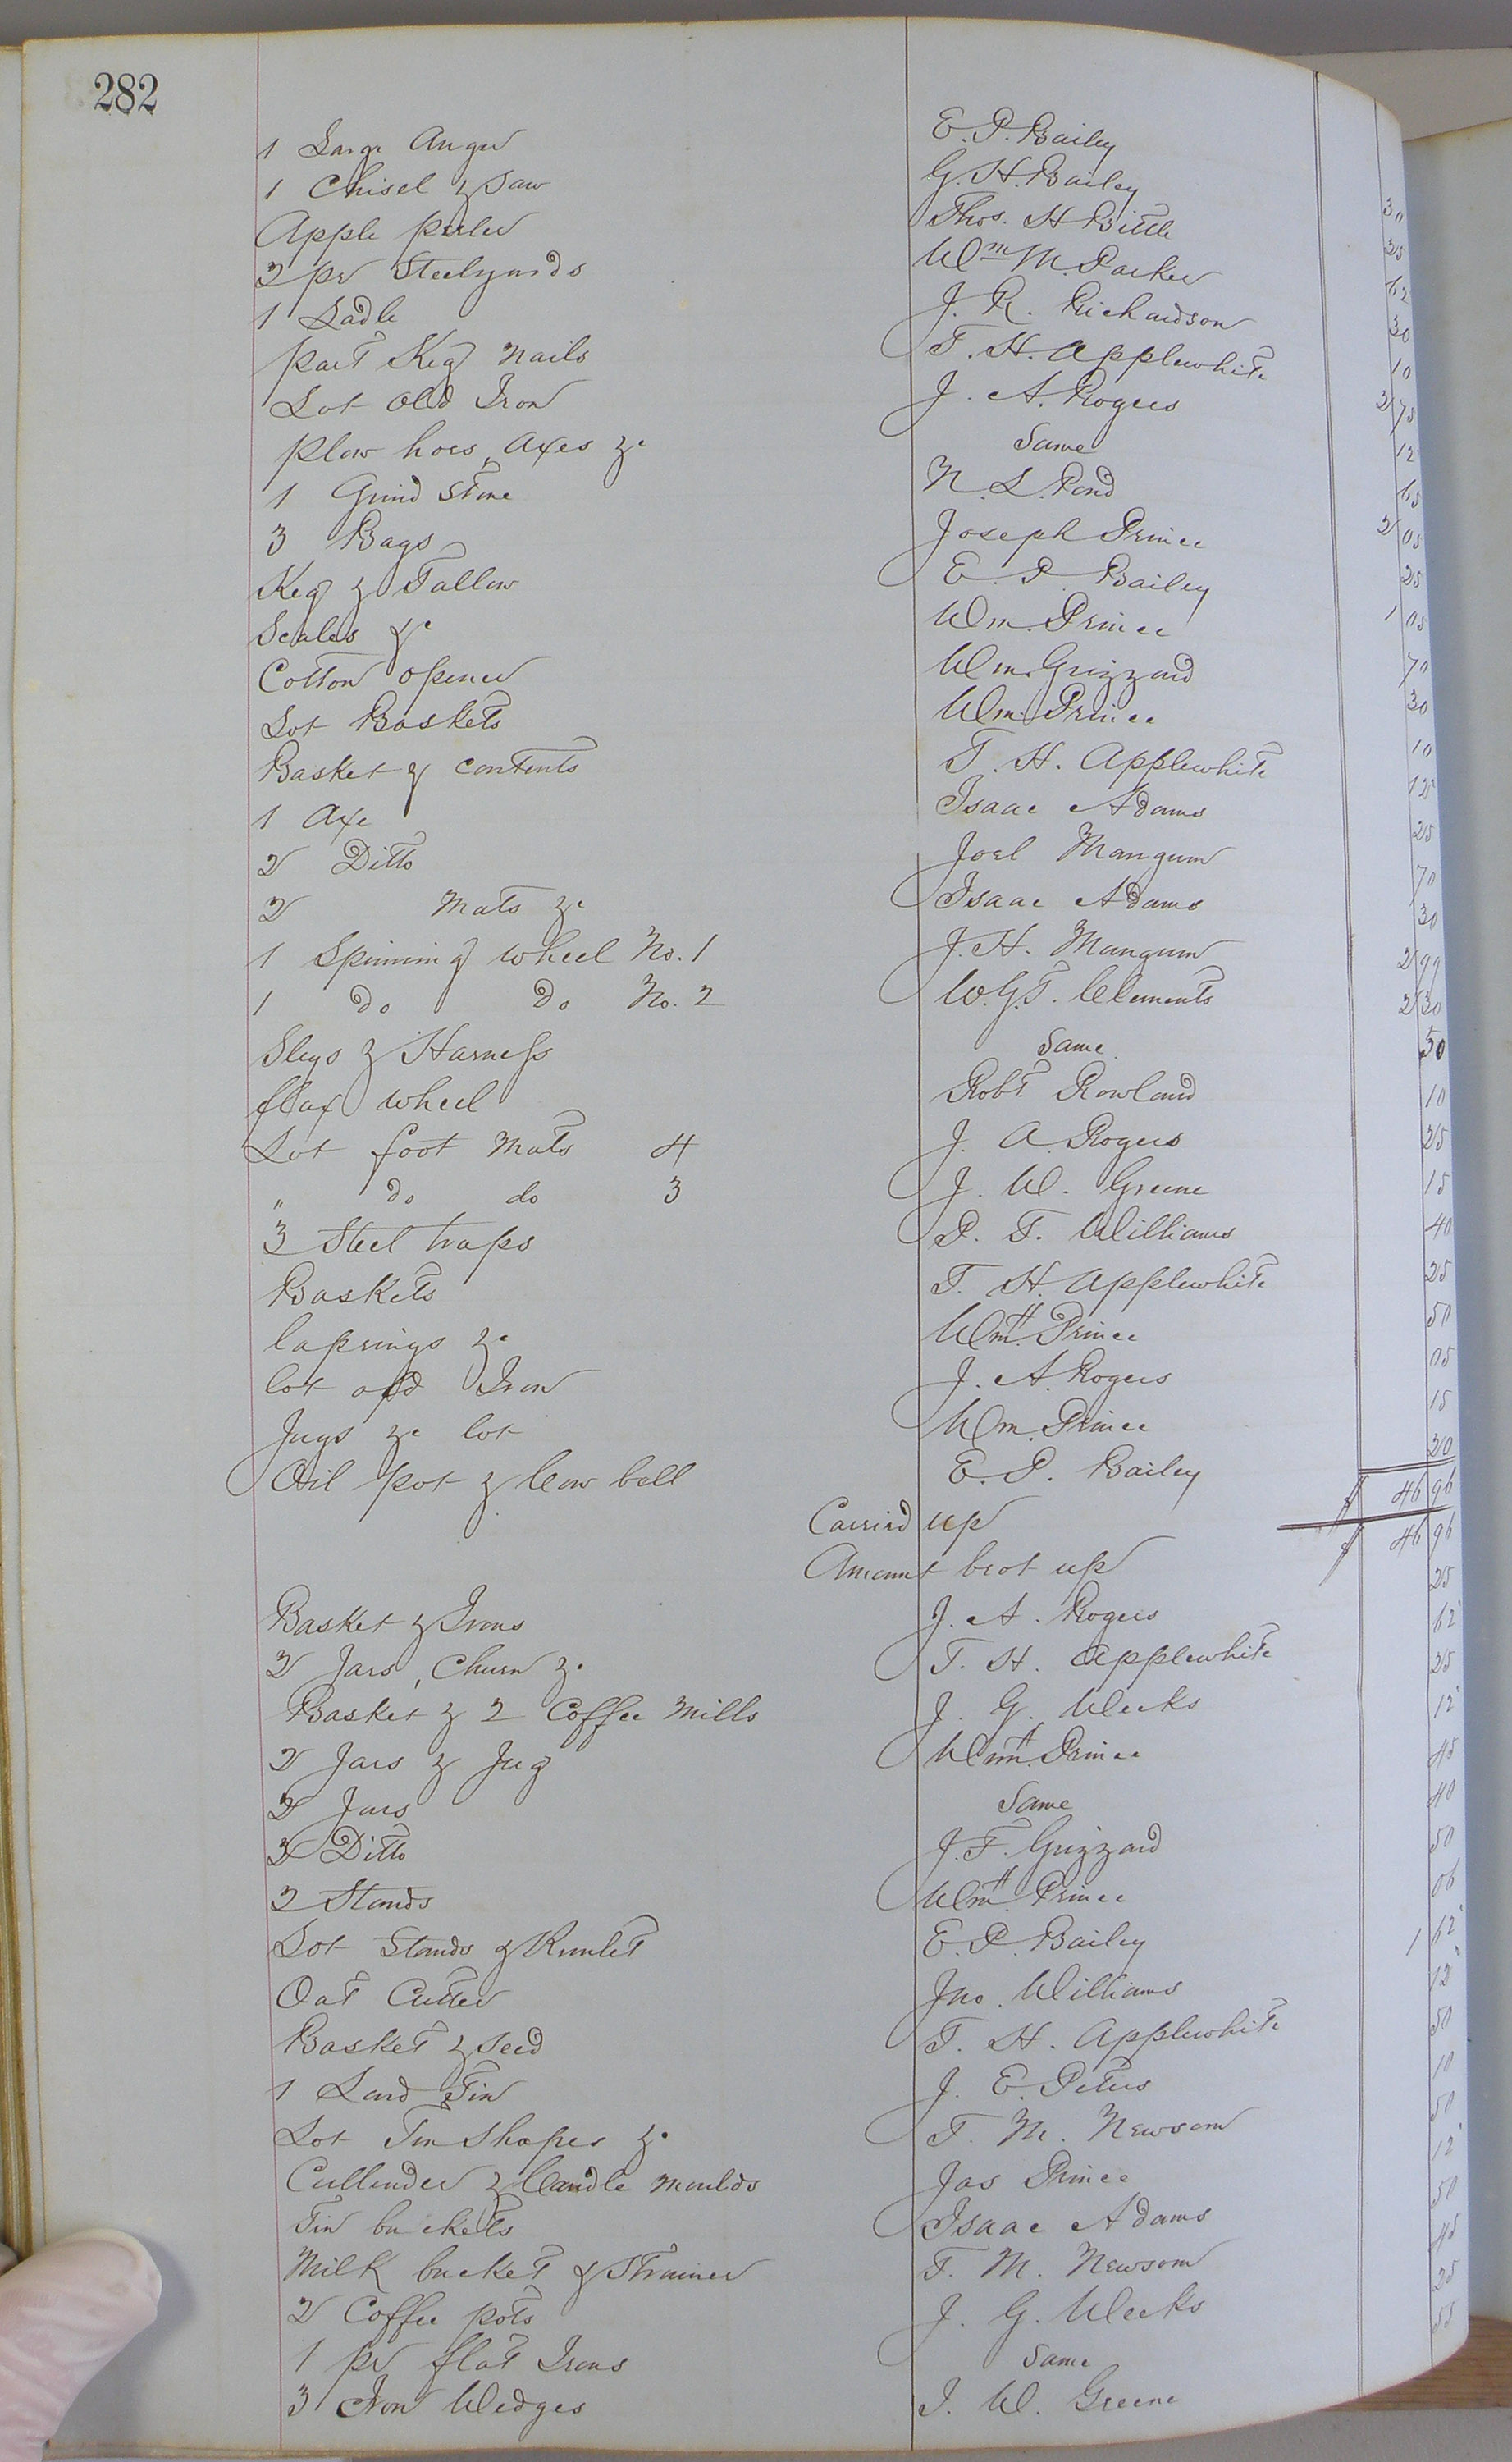 282
1 Large Auger E. P. Bailey
1 Chisel & Saw G. H. Bailey 30
Apple peeler Thos. H Bittle 25
2 pr Steelyards Wm M. Parker 62
1 Ladle J. R. Richardson 30
part Keg Nails T. H. Applewhite 10
Lot old Iron J. A. Rogers 3 75
plow hoes, Axes &c Same 12
1 Grind Stone N. L. Pond 65
3 Bags Joseph Prince 3 05
Keg & Tallow E. P. Bailey 25
Scales &c Wm. Prince 1 05
Cotton opener Wm. Grizzard 70
Lot Baskets Wm. Prince 30
Basket & contents T. H. Applewhite 10
1 Axe Isaac Adams 12
2 Ditto Joel Mangum 25
2 Mats &c Isaac Adams 70
1 Spinning wheel No. 1 J. H. Mangum 30
1 do do No. 2 W. G. T. Clements 2 99
Sleys & Harness Same 2 30
flax wheel Robt. Rowland 50
Lot foot Mats 4 J. A. Rogers 10
" do do 3 J. W. Greene 25
3 Steel traps P. T. Williams 15
Baskets T. H. Applewhite 40
caprings &c Wm H. Prince 25
lot old Iron J. A. Rogers 50
Jugs &c lot Wm. Prince 05
Oil pot & Cow bell E. P. Bailey 15
30
Carried up $ 46 96
Amount brot up $ 46 96
Basket & Irons J. A. Rogers 25
2 Jars, Churn &c T. H. Applewhite 62
Basket & 2 Coffee Mills J. G. Weeks 25
2 Jars & Jug Wm H. Prince 12
2 Jars Same 45
3 Ditto J. T. Grizzard 40
2 Stands Wm H. Prince 50
Lot Stands & Runlet E. P. Bailey 06
Oat Cutter Jno. Williams 1 62
Basket & Seed T. H. Applewhite 12
1 Lard Tin J. E. Peters 50
Lot Tin Shapes &c T. M. Newsom 10
Cullender & Candle moulds Jas Prince 50
Tin buckets Isaac Adams 12
Milk bucket & Strainer T. M. Newsom 50
2 Coffee pots J. G. Weeks 45
1 pr flat Irons Same 25
3 Iron Wedges J. W. Greene 55